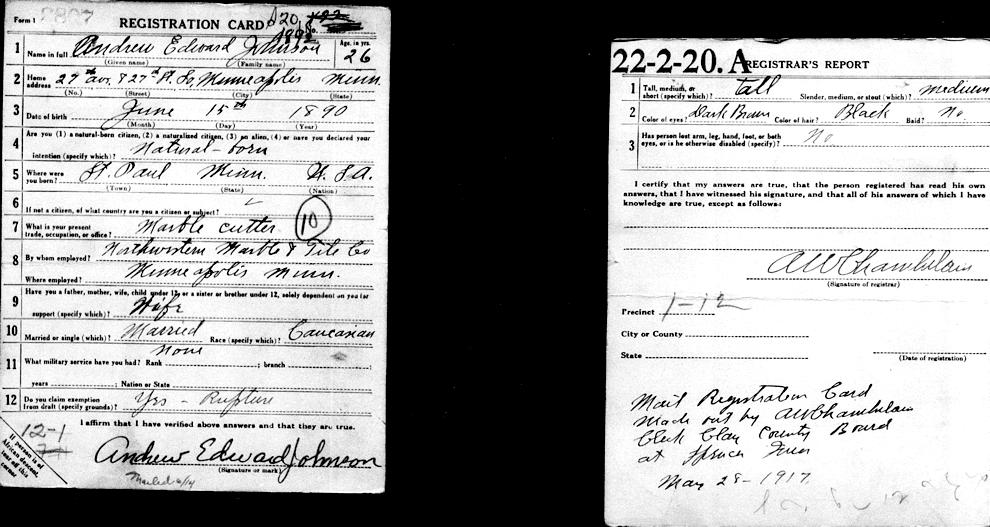 Form 1
REGISTRATION CARD No.
1 Name in full Andrew Edward Johnson Age, in yrs. 26
(Given name) (Family name)
2 Home address 27th av. & 27th St. So, Minneapolis Minn.
(No.) (Street) (City) (State)
3 Date of birth June 15th 1890
(Month) (Day) (Year)
4 Are you (1) a natural-born citizen, (2) a naturalized citizen, (3) an alien, (4) or have you declared your
intention (specify which)? Natural-born
5 Where were you born? St. Paul Minn. U. S. A.
(Town) (State) (Nation)
6 If not a citizen, of what country are you a citizen or subject?
7 What is your present trade, occupation, or office? Marble cutter 10
8 By whom employed? Northwestern Marble & Tile Co
Where employed? Minneapolis Minn.
9 Have you a father, mother, wife, child under 12, or a sister or brother under 12, solely dependent on you for
support (specify which)? Wife
10 Married or single (which)? Married Race (specify which)? Caucasian
11 What military service have you had? Rank None ; branch ;
years ; Nation or State
12 Do you claim exemption from draft (specify grounds)? Yes - Rupture
I affirm that I have verified above answers and that they are true.
12-1
Andrew Edward Johnson
(Signature or mark)
If person is of
African descent,
tear off this
corner
Mailed 6/14
22-2-20. A REGISTRAR'S REPORT
1 Tall, medium, or short (specify which)? tall Slender, medium, or stout (which)? medium
2 Color of eyes? Dark Brown Color of hair? Black Bald? No.
3 Has person lost arm, leg, hand, foot, or both
eyes, or is he otherwise disabled (specify)? No
I certify that my answers are true, that the person registered has read his own
answers, that I have witnessed his signature, and that all of his answers of which I have
knowledge are true, except as follows:
AW Chamberlain
(Signature of registrar)
Precinct 1-12
City or County
State
(Date of registration)
Mail Registration Card
Made out by AW Chamberlain
Clerk Clay County Board
at Spencer Iowa
May 28-1917.